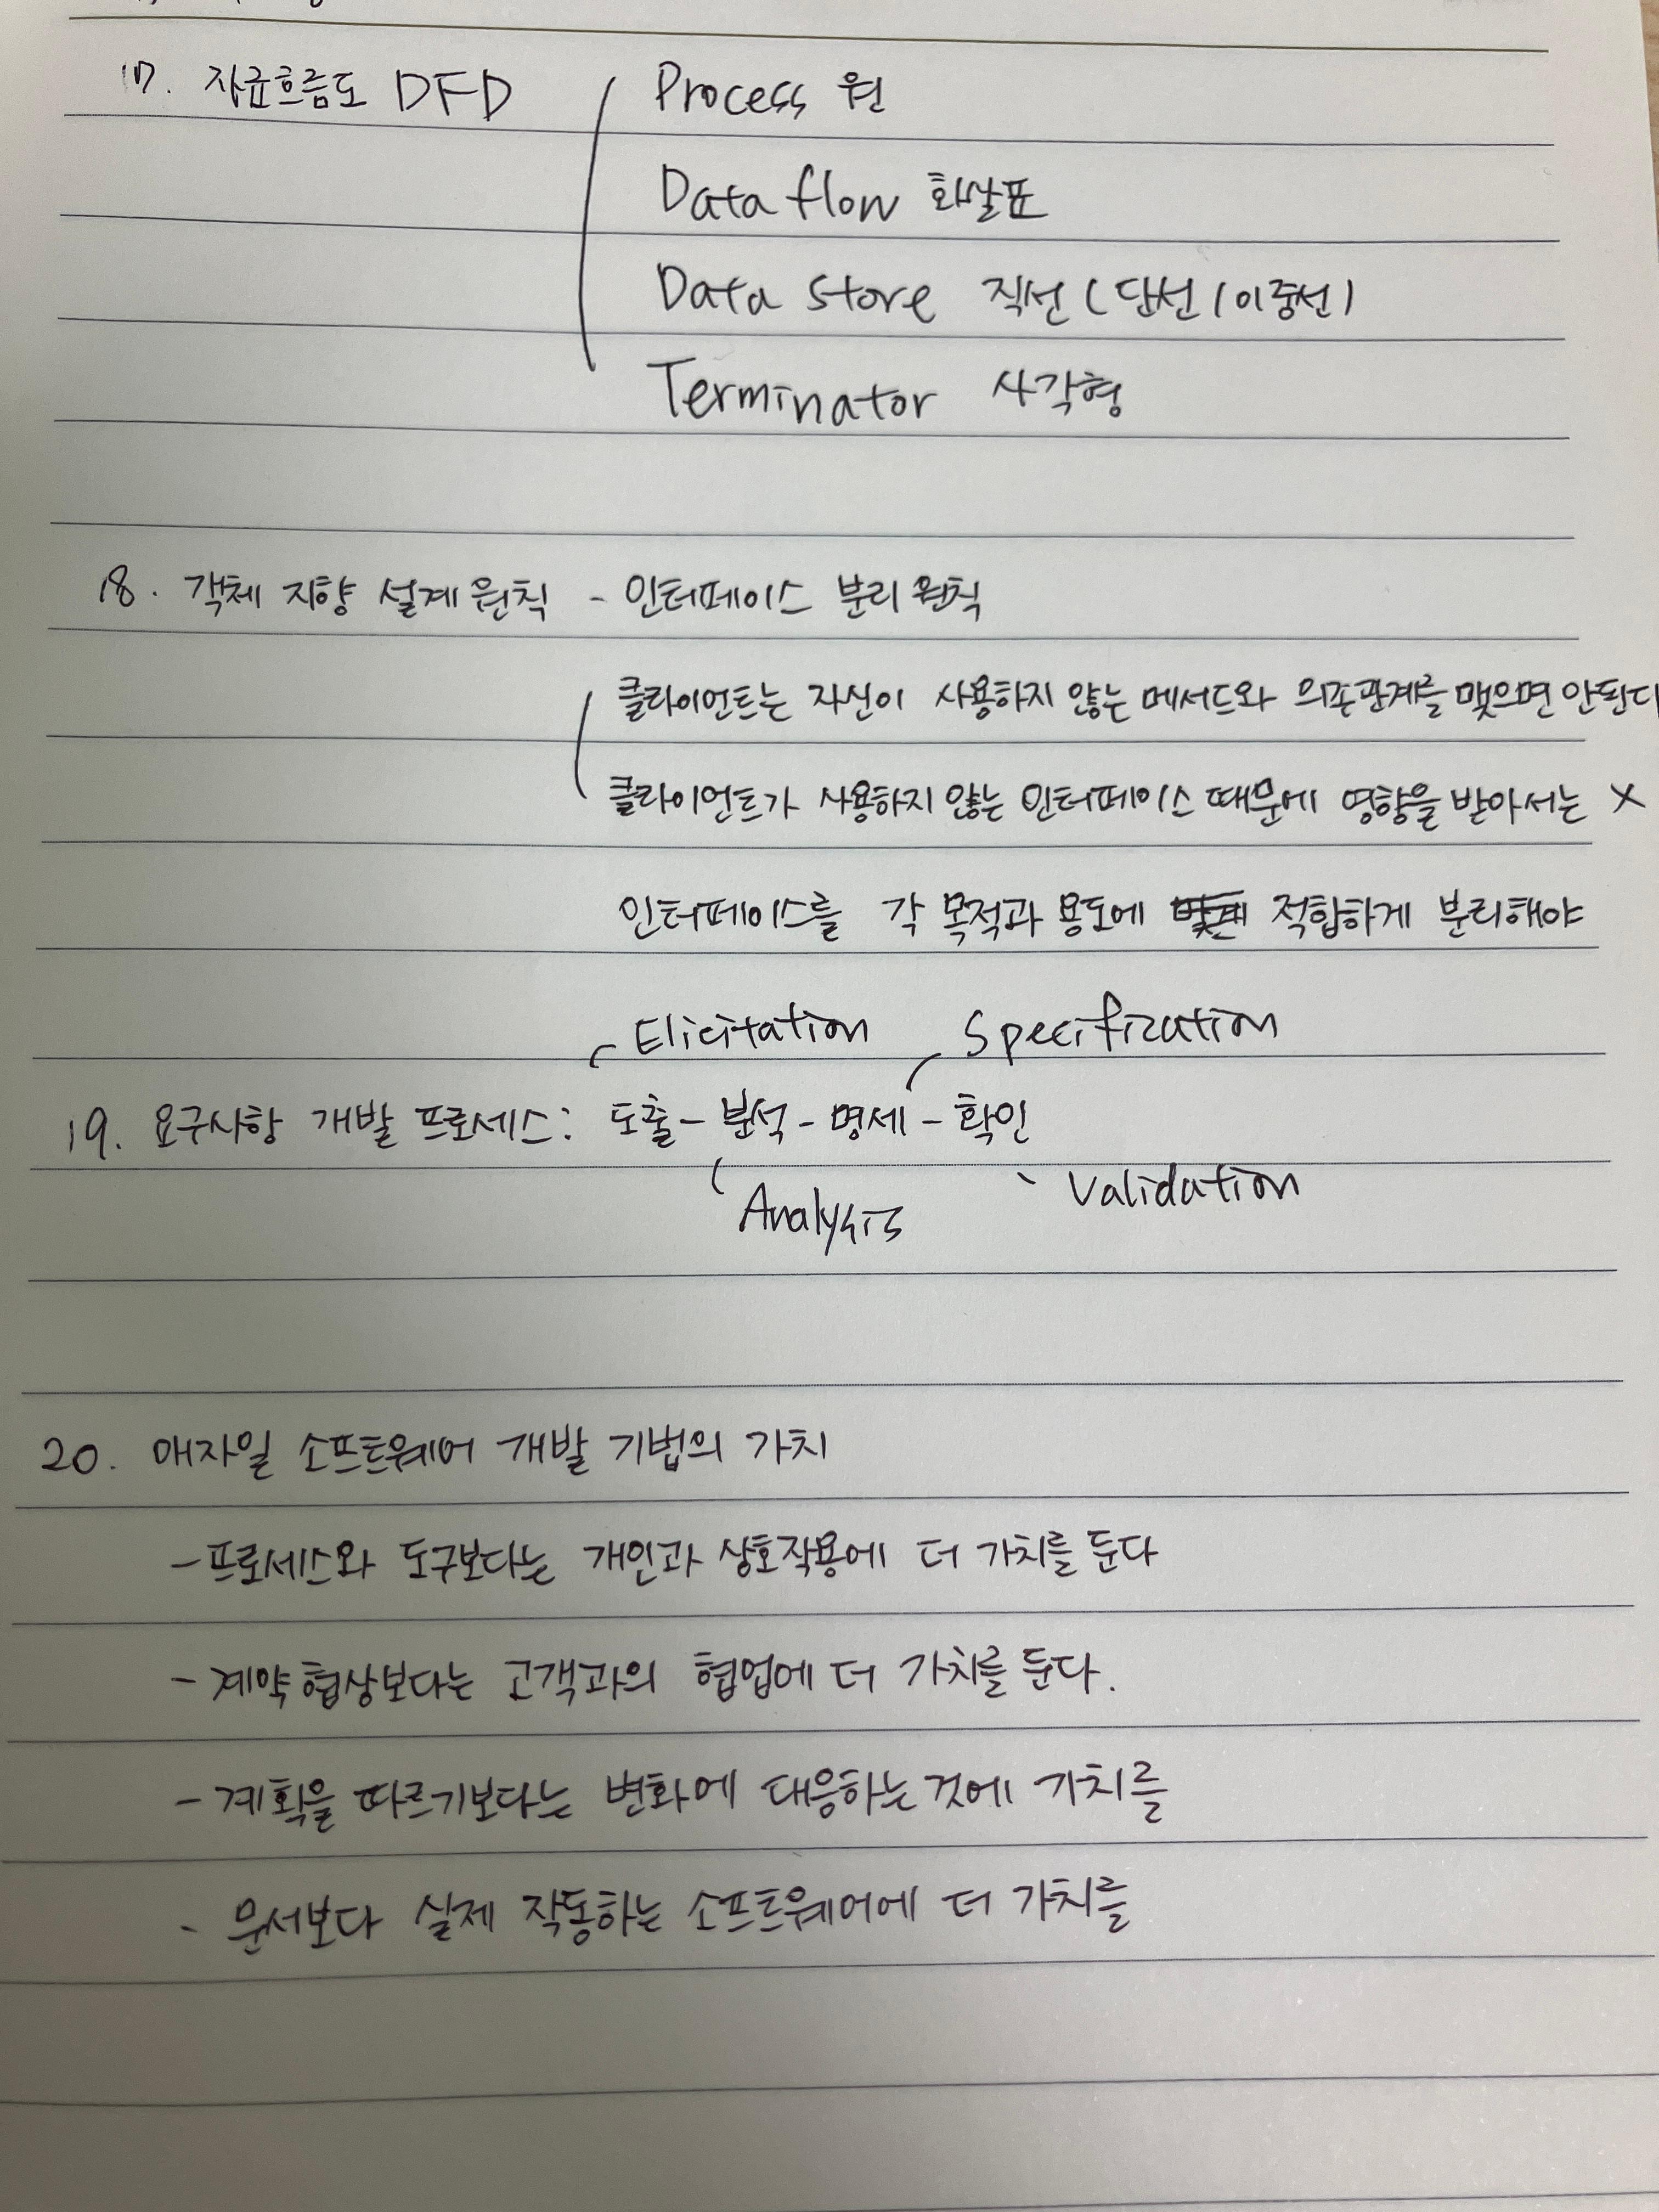 17. 자료흐름도 DFD Process 원
Data flow 화살표
Data store 직선 (단선/이중선)
Terminator 사각형
18. 객체 지향 설계 원칙 - 인터페이스 분리 원칙
클라이언트는 자신이 사용하지 않는 메서드와 의존관계를 맺으면 안된다
클라이언트가 사용하지 않는 인터페이스 때문에 영향을 받아서는 X
인터페이스를 각 목적과 용도에 적합하게 분리해야
Elicitation Specification
19. 요구사항 개발 프로세스: 도출 - 분석 - 명세 - 확인
Analysis Validation
20. 애자일 소프트웨어 개발 기법의 가치
- 프로세스와 도구보다는 개인과 상호작용에 더 가치를 둔다
- 계약협상보다는 고객과의 협업에 더 가치를 둔다.
- 계획을 따르기보다는 변화에 대응하는 것에 가치를
- 문서보다 실제 작동하는 소프트웨어에 더 가치를